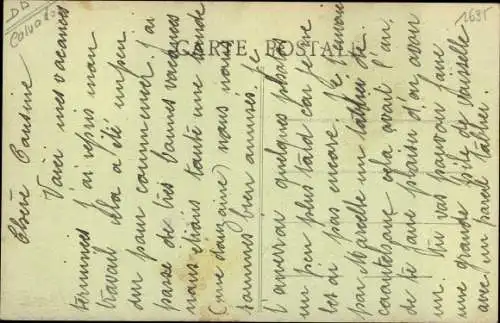 DD
Calvados
2635
CARTE POSTALE
Chère Pauline
Voici mes vacances
terminées j'ai repris mon
travail cela a été un peu
dur pour commencer. J'ai
passé de très bonnes vacances
nous étions toute une bande
(une douzaine) nous nous
sommes bien amusés. Je
t'enverrai quelques photos
un peu plus tard car je ne
les ai pas encore. Je t'envoie
par Marcelle un tablier de
caoutchouc cela avait l'air
de te faire plaisir d'en avoir
un Tu vas pouvoir faire
une grande pile de vaisselle
avec un pareil tablier.